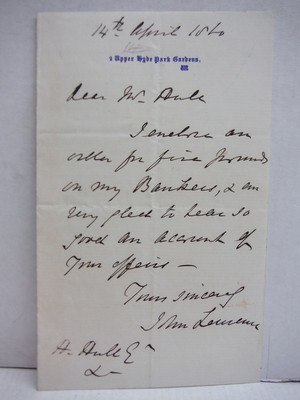 14th April 1860
3 Upper Hyde Park Gardens.
Dear Mr. Hull
I enclose an
order for five pounds
on my Bankers, & am
very glad to hear so
good an account of
your affairs —
Yours sincerely
John Lawrence
H. Hull Esqr